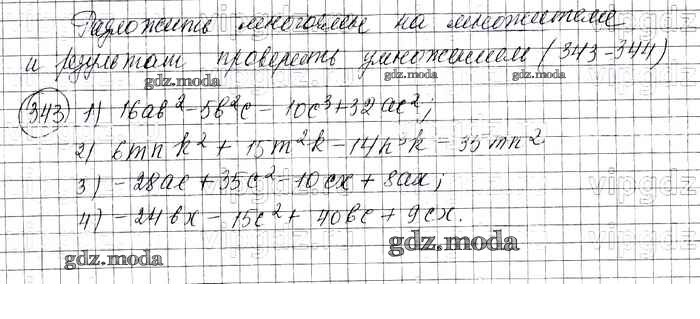 Разложить многочлен на множители
и результат проверить умножением (343-344)
gdz.moda gdz.moda gdz.moda
343 1) 16ab² - 5b²c - 10c³ + 32ac²;
2) 6mnk² + 15m²k - 14n³k - 35mn²
3) - 28ac + 35c² - 10cx + 8ax;
4) - 24bx - 15c² + 40bc + 9cx.
gdz.moda
gdz.moda